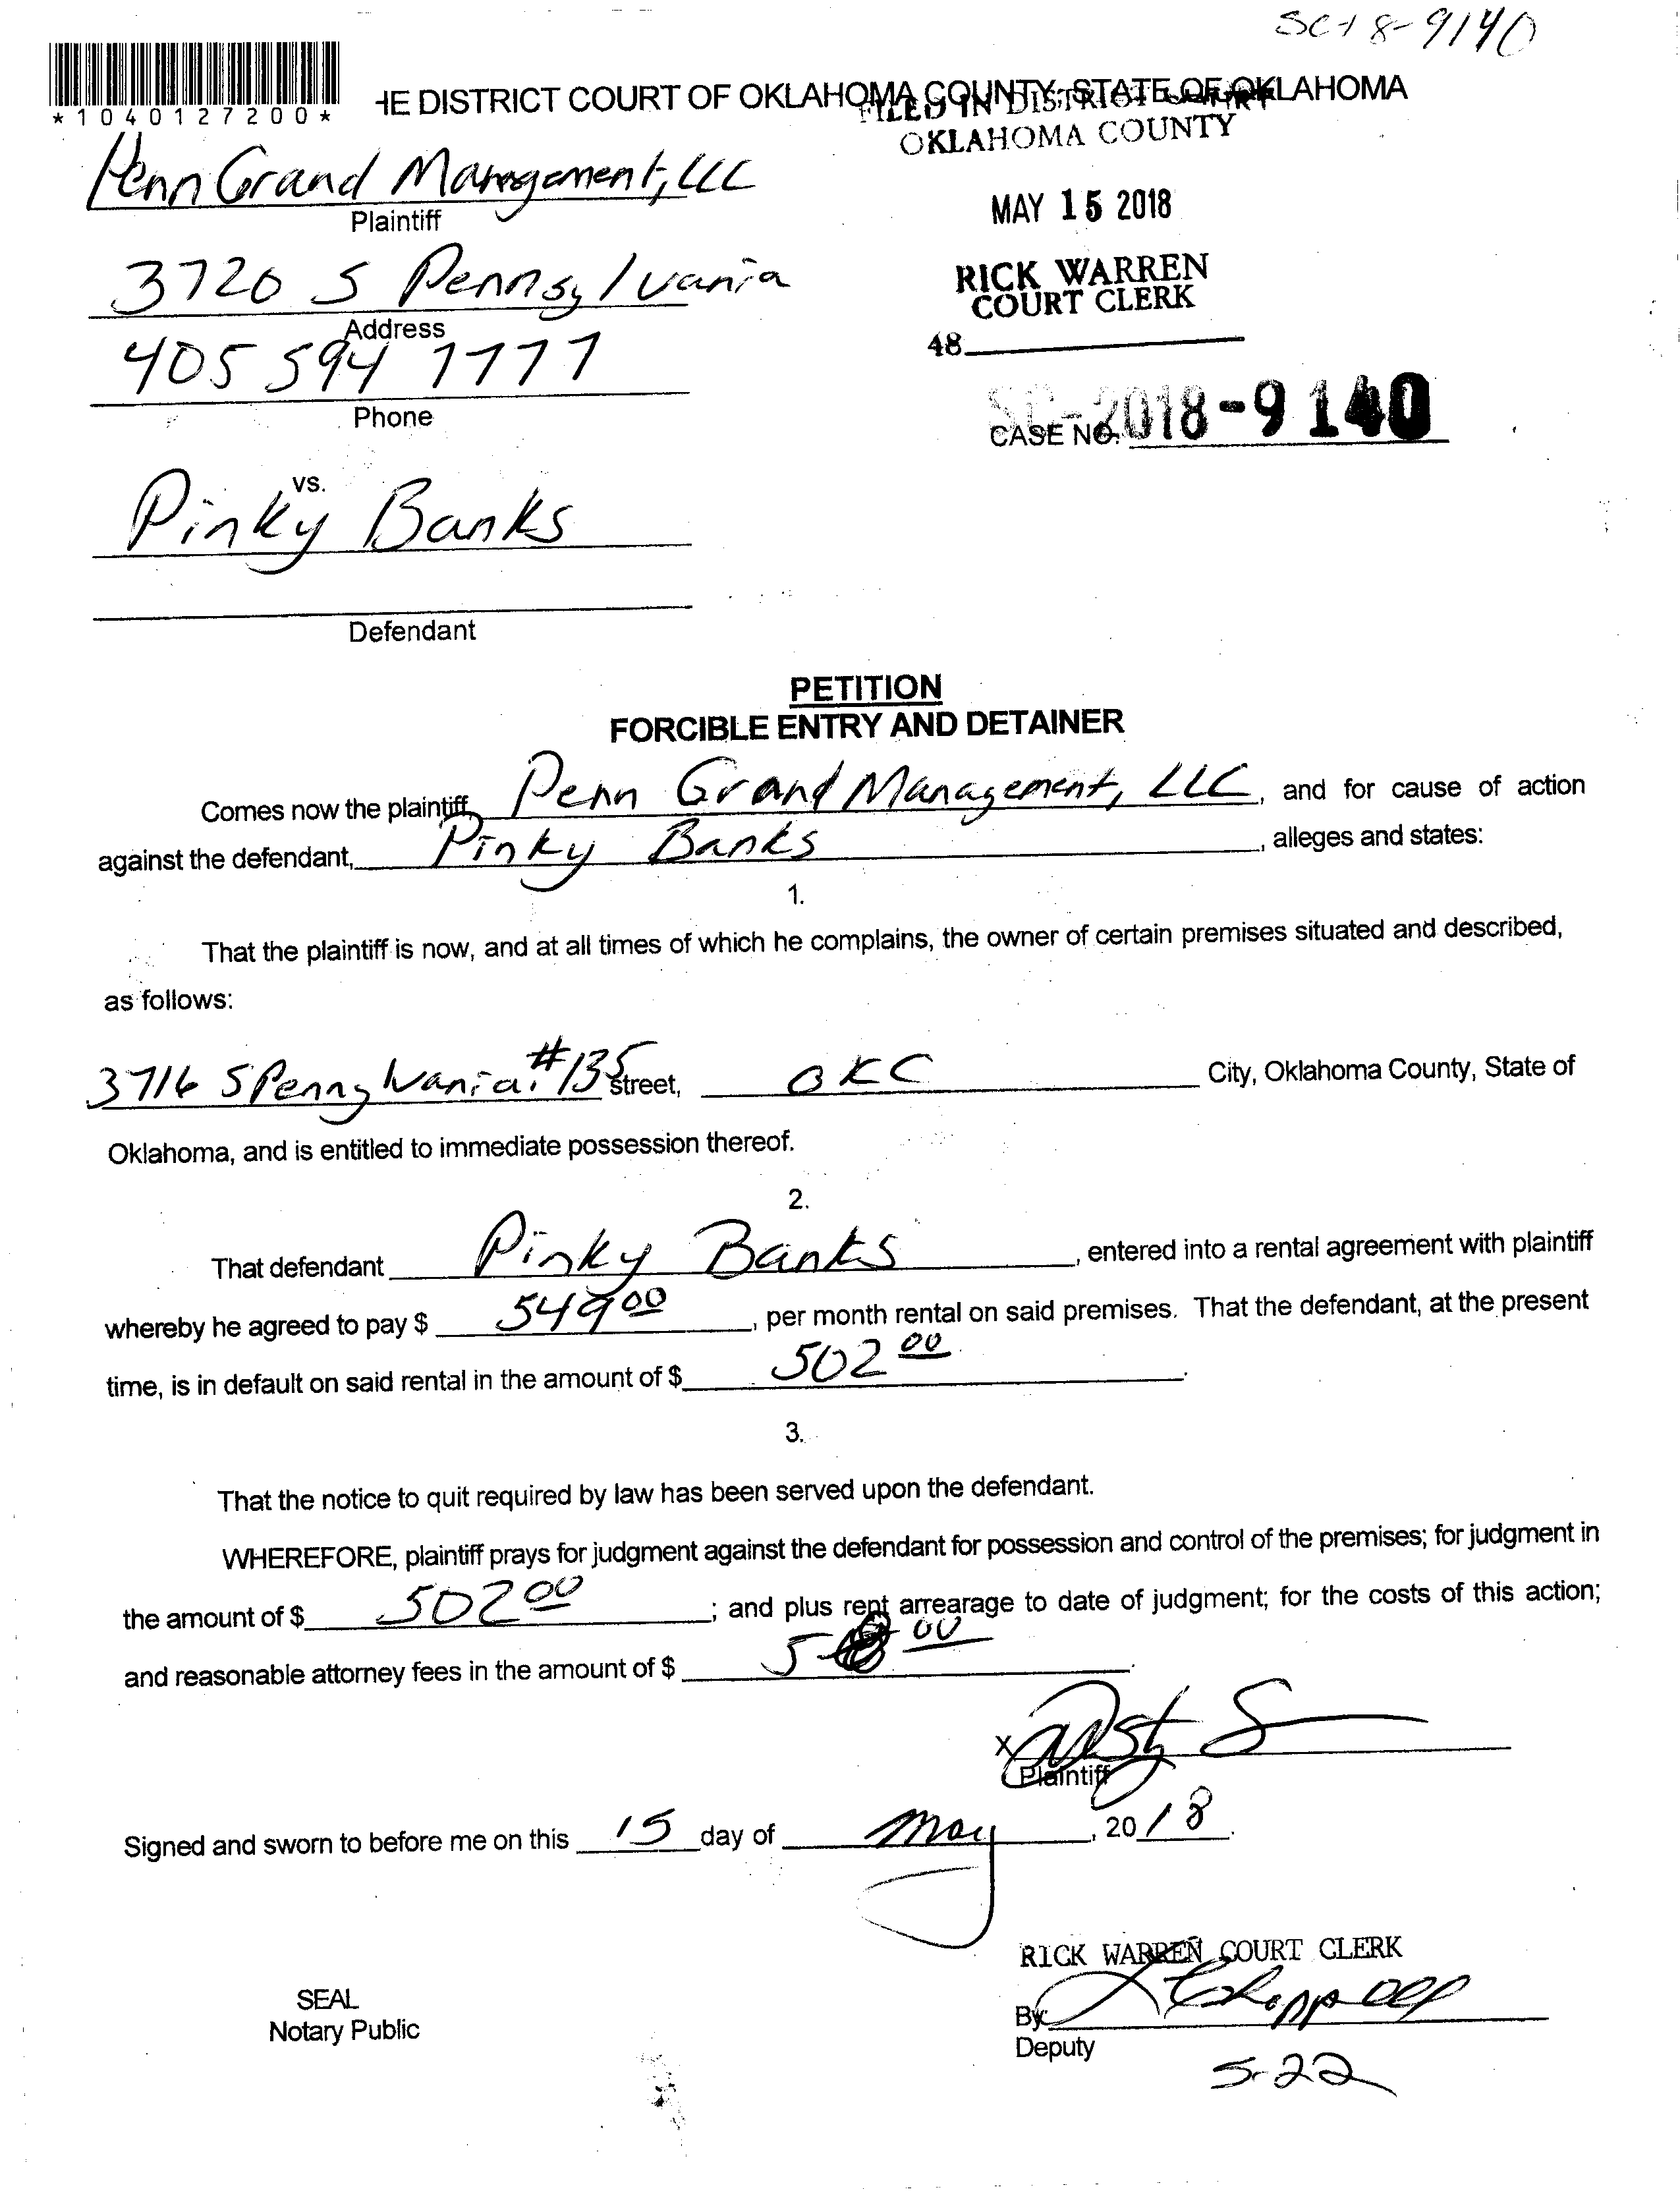 SC-18-9140
*1040127200*
HE DISTRICT COURT OF OKLAHOMA COUNTY, STATE OF OKLAHOMA
FILED IN DISTRICT COURT
OKLAHOMA COUNTY
Penn Grand Management, LLC
Plaintiff
MAY 15 2018
3720 S Pennsylvania
Address
RICK WARREN
COURT CLERK
48
405 594 7777
Phone
SC-2018-9140
CASE NO.
vs.
Pinky Banks
Defendant
PETITION
FORCIBLE ENTRY AND DETAINER
Comes now the plaintiff, Penn Grand Management, LLC, and for cause of action
against the defendant, Pinky Banks, alleges and states:
1.
That the plaintiff is now, and at all times of which he complains, the owner of certain premises situated and described,
as follows:
3716 S Pennsylvania #135 street, OKC City, Oklahoma County, State of
Oklahoma, and is entitled to immediate possession thereof.
2.
That defendant Pinky Banks, entered into a rental agreement with plaintiff
whereby he agreed to pay $ 549 00, per month rental on said premises. That the defendant, at the present
time, is in default on said rental in the amount of $ 502 00.
3.
That the notice to quit required by law has been served upon the defendant.
WHEREFORE, plaintiff prays for judgment against the defendant for possession and control of the premises; for judgment in
the amount of $ 502 00; and plus rent arrearage to date of judgment; for the costs of this action;
and reasonable attorney fees in the amount of $ 00.
X
Plaintiff
Signed and sworn to before me on this 15 day of May, 2018.
RICK WARREN COURT CLERK
SEAL
Notary Public
By:
Deputy
5-22